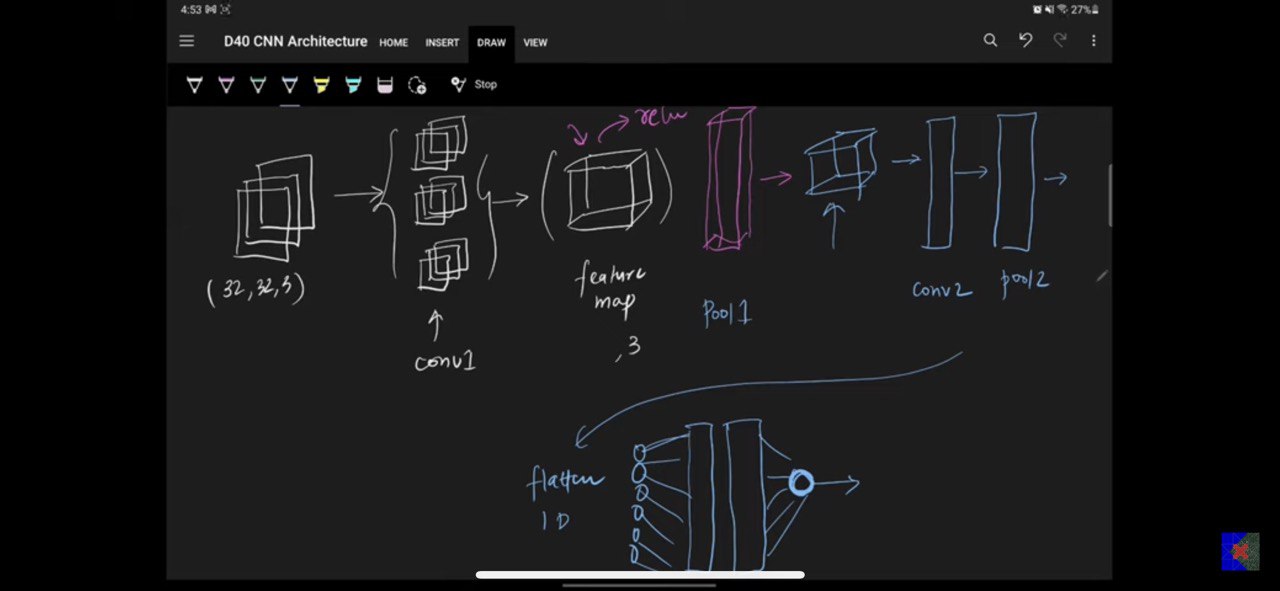 4:53
27%
D40 CNN Architecture HOME INSERT DRAW VIEW
Stop
relu
(32,32,3)
conv1
feature
map
,3
Pool1
conv2
pool2
flatten
1D